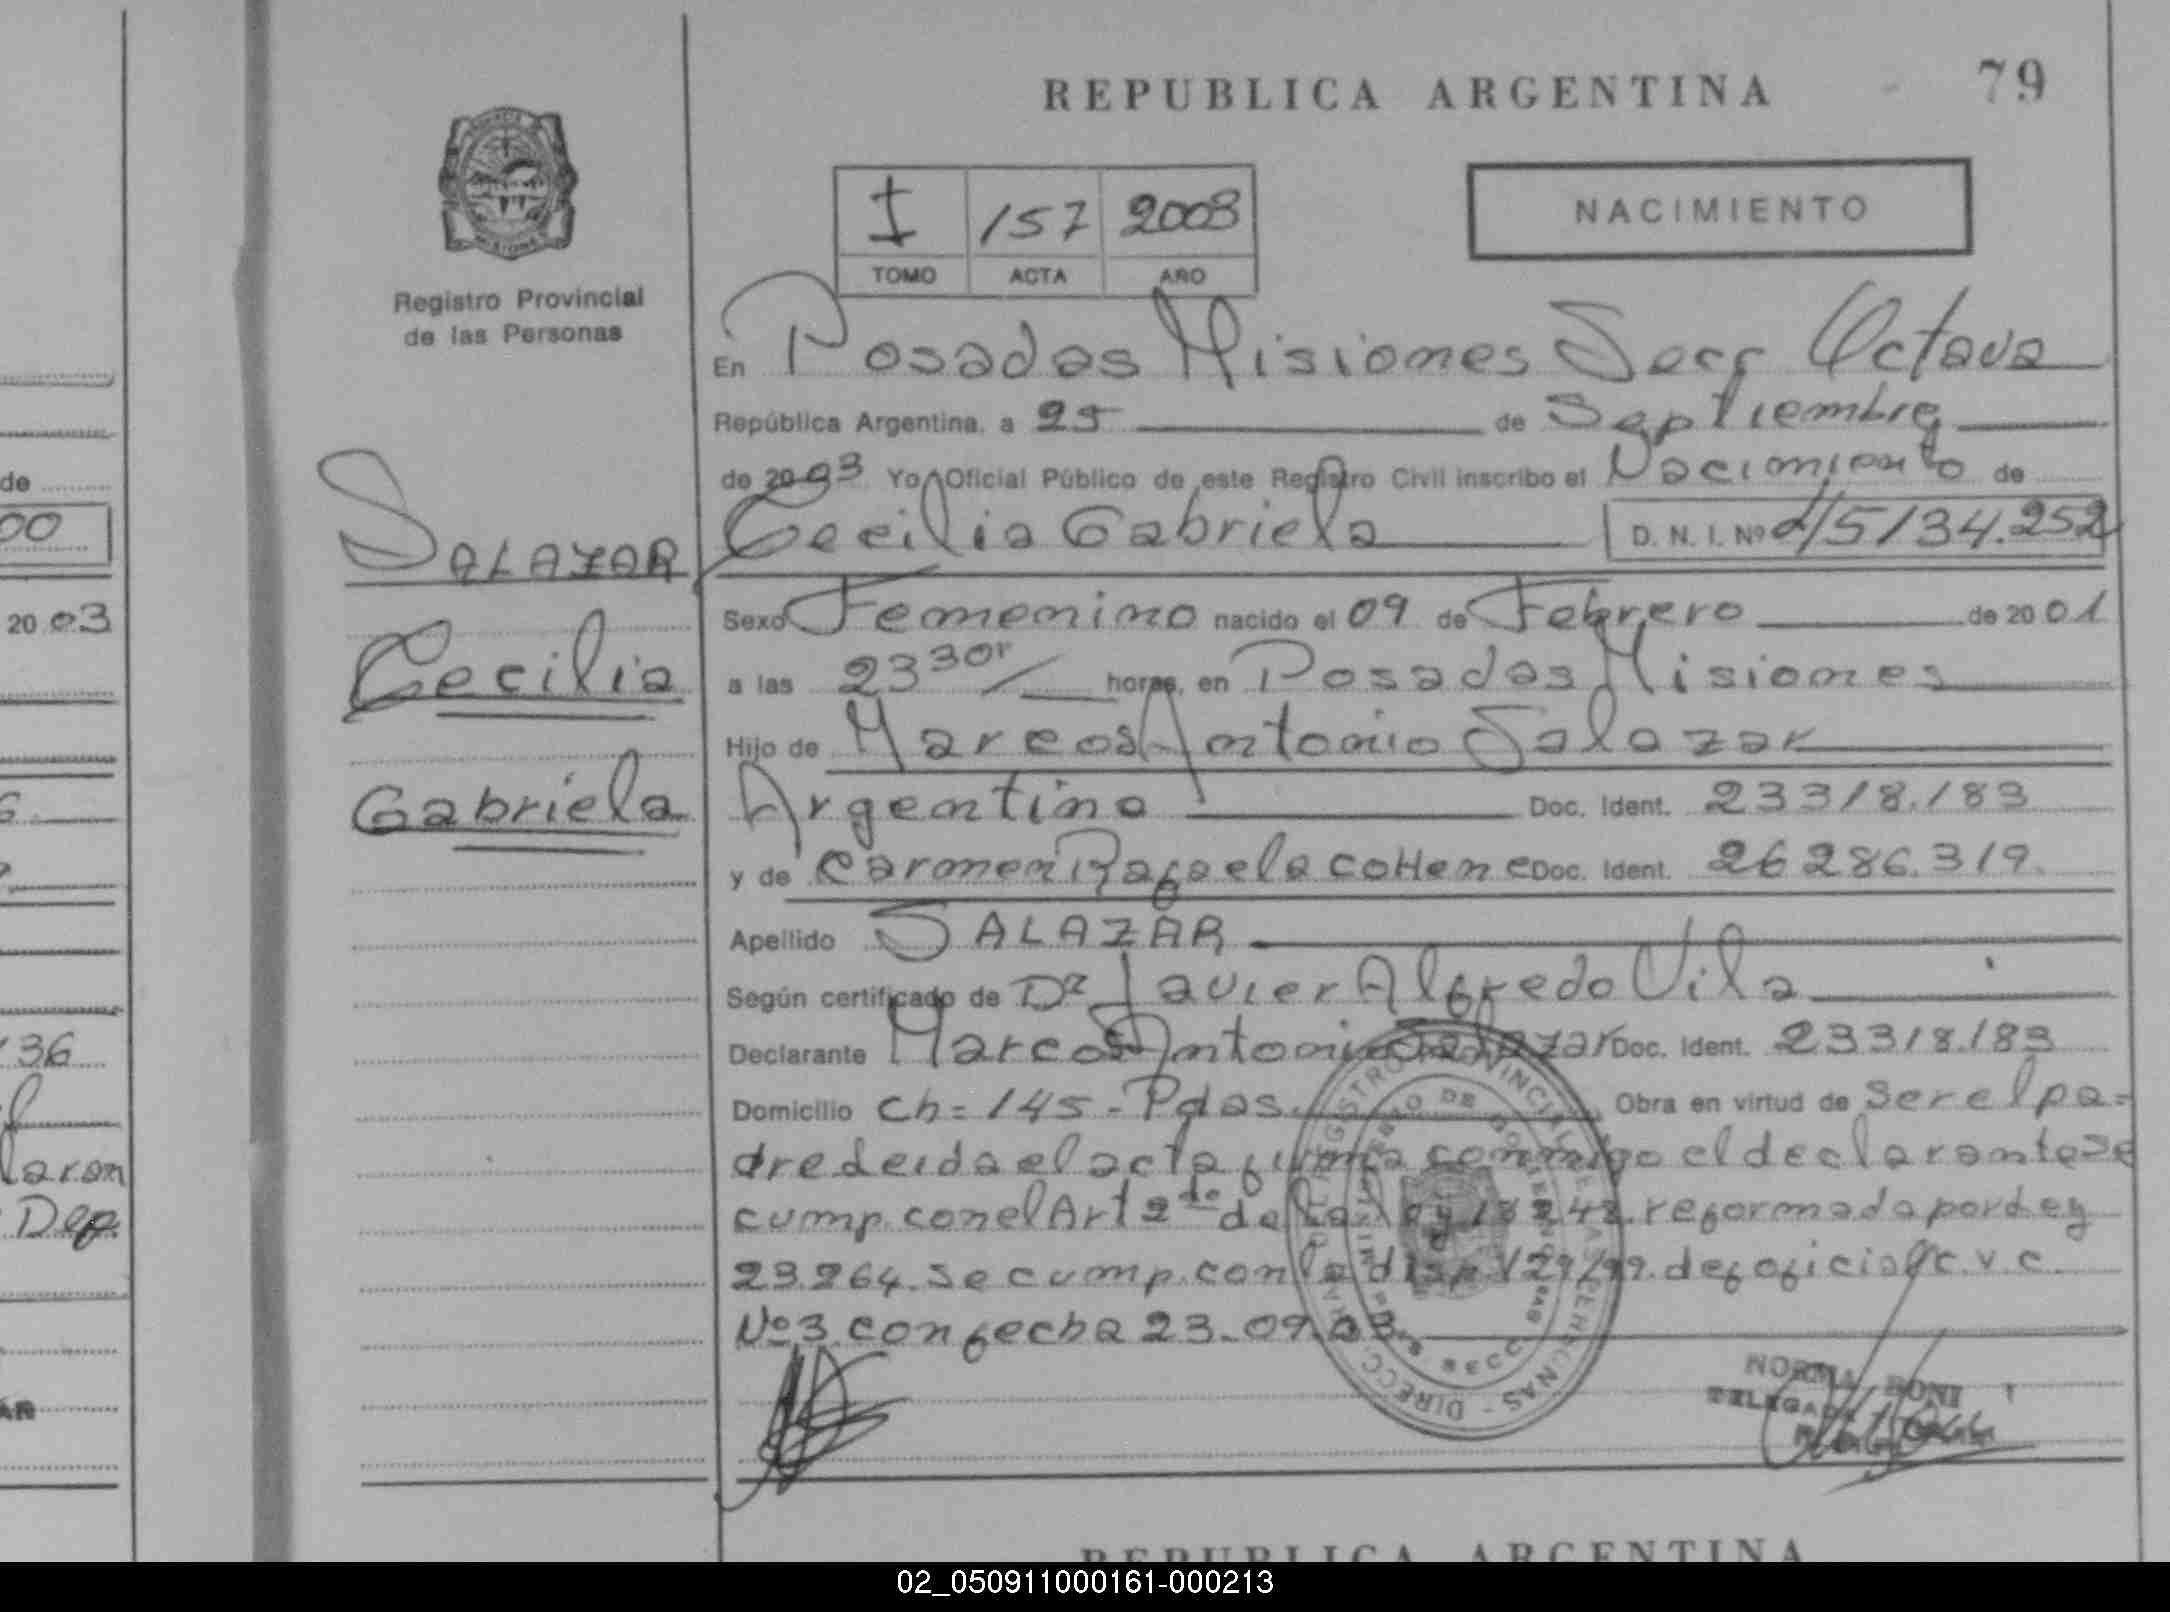 REPUBLICA ARGENTINA 79
NACIMIENTO
I 157 2003
TOMO ACTA AÑO
Registro Provincial
de las Personas
En Posadas Misiones Secc Octava
República Argentina, a 25 de Septiembre
de 2003 Yo, Oficial Público de este Registro Civil inscribo el Nacimiento de
SALAZAR
Cecilia
Gabriela
Cecilia Gabriela D. N. I. Nº 45134.252
Sexo Femenino nacido el 09 de Febrero de 2001
a las 23 30 horas, en Posadas Misiones
Hijo de Marcos Antonio Salazar
Argentino Doc. Ident. 23318.183
y de Carmen Rafaela coHene Doc. Ident. 26286.319.
Apellido SALAZAR
Según certificado de Dr Javier Alfredo Vila
Declarante Marcos Antonio Salazar Doc. Ident. 23318.183
Domicilio Ch=145-Pdas. Obra en virtud de ser el pa=
dre deida el acta firma conmigo el declarante se
cump. con el Art 2do de la Ley 18248. reformada por Ley
23.264. se cump. con la disp 129/99. def oficial c.v.c.
Nº3 con fecha 23-09-03
NORMA BONI
REPUBLICA ARGENTINA
de
00
20 03
36
laran
Dep
AR
02_050911000161-000213